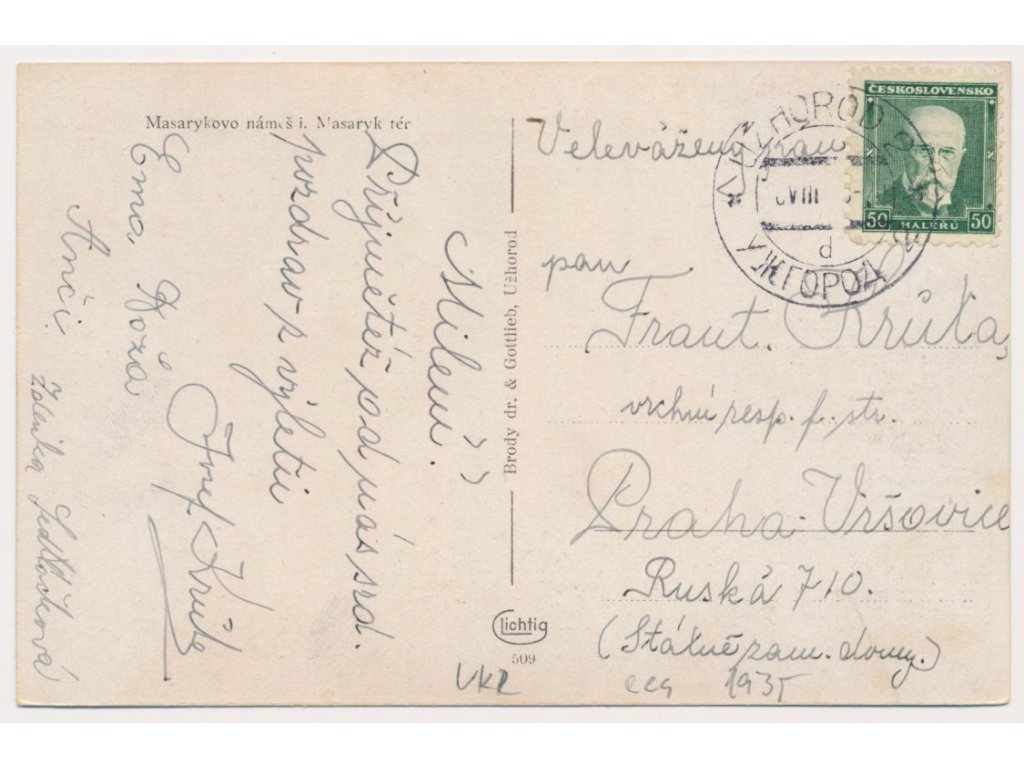 Masarykovo náměs i. Masaryk tér
Milení.
Přijmětež od nás srd.
pozdrav z výletu
Josef Krůta
Ema Róza
Anči
Zdenka Sedláčková
Brody dr. & Gottlieb, Užhorod
Lichtig
509
ČESKOSLOVENSKO
50 HALERU 50
UŽHOROD 2
VIII
d
УЖГОРОД
Velevážený pan
pan
Frant. Krůta,
vrchní resp. f. str.
Praha-Vršovice
Ruská 710.
(Státně zam. domy.)
ccg 1935
VKZ